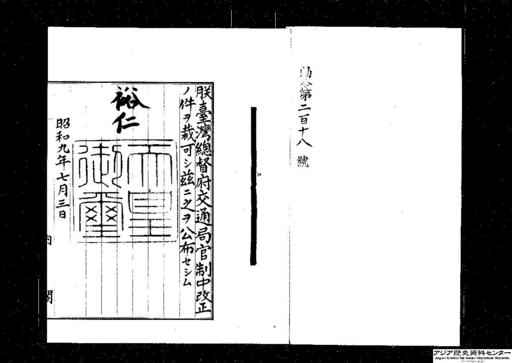 勅令第二百十八號
朕臺灣總督府交通局官制中改正
ノ件ヲ裁可シ茲ニ之ヲ公布セシム
裕仁
天皇御璽
昭和九年七月三日
内閣
アジア歴史資料センター
Japan Center for Asian Historical Records